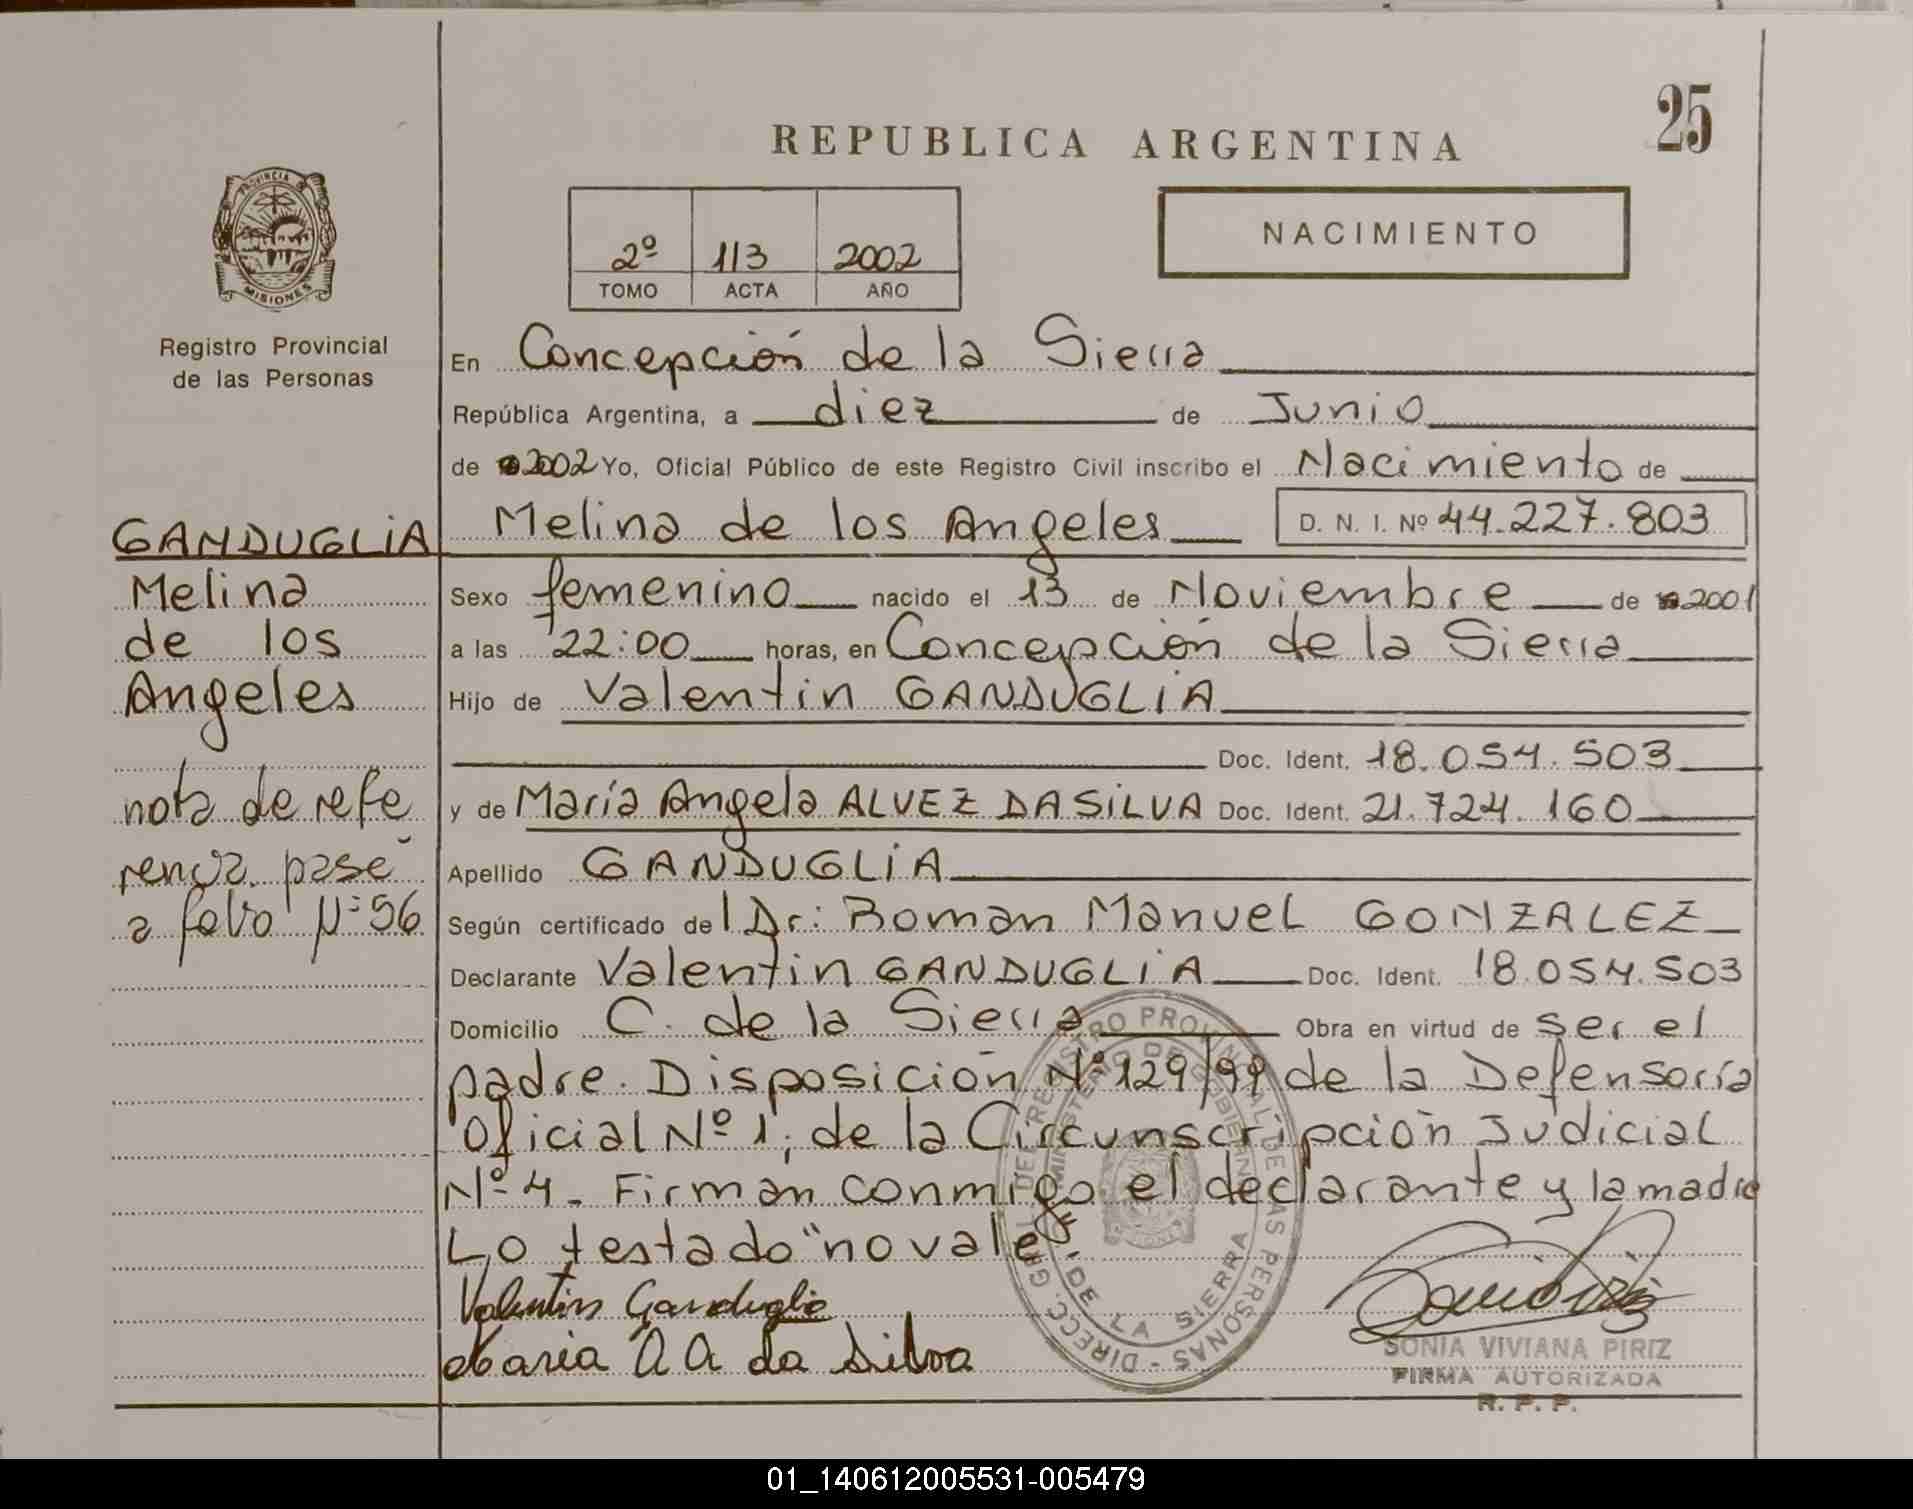 25
REPUBLICA ARGENTINA
NACIMIENTO
2º 113 2002
TOMO ACTA AÑO
PROVINCIA DE
MISIONES
Registro Provincial
de las Personas
En Concepción de la Sierra
República Argentina, a diez de Junio
de 2002 Yo, Oficial Público de este Registro Civil inscribo el Nacimiento de
Melina de los Angeles D. N. I. Nº 44.227.803
Sexo femenino nacido el 13 de Noviembre de 2001
a las 22:00 horas, en Concepción de la Sierra
Hijo de Valentin GANDUGLIA
Doc. Ident. 18.054.503
y de María Angela ALVEZ DA SILVA Doc. Ident. 21.724.160
Apellido GANDUGLIA
Según certificado del Dr: Roman Manuel GONZALEZ
Declarante Valentin GANDUGLIA Doc. Ident. 18.054.503
Domicilio C. de la Sierra Obra en virtud de ser el
padre. Disposición Nº 129/99 de la Defensoría
Oficial Nº 1, de la Circunscripción Judicial
Nº 4. Firman conmigo el declarante y la madre
Lo testado "no vale".
Valentin Ganduglia
Maria A A da Silva
GANDUGLIA
Melina
de los
Angeles
nota de refe
rencia pase
a folio Nº 56
DIRECC. GRAL. DEL REGISTRO PROVINCIAL DE LAS PERSONAS
MINISTERIO DE GOBIERNO
DE LA SIERRA
SONIA VIVIANA PIRIZ
FIRMA AUTORIZADA
R. P. P.
01_140612005531-005479